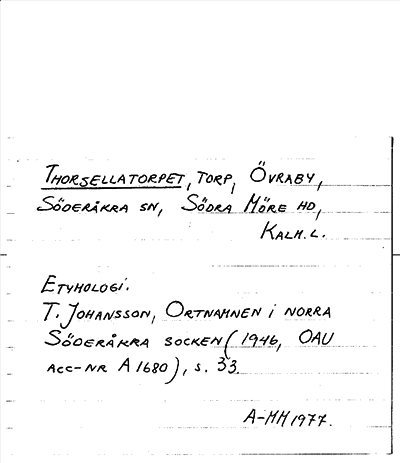 THORSELLATORPET, TORP, ÖVRABY,
SÖDERÅKRA SN, SÖDRA MÖRE HD,
KALM. L.
ETYMOLOGI.
T. JOHANSSON, ORTNAMNEN I NORRA
SÖDERÅKRA SOCKEN (1946, OAU
ACC-NR A 1680), S. 33.
A-MH 1977.